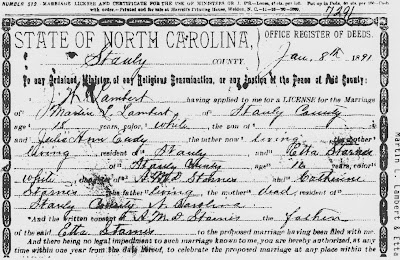 NUMBER 312.—MARRIAGE LICENSE AND CERTIFICATE FOR THE USE OF MINISTERS OR J. P.
STATE OF NORTH CAROLINA,
OFFICE REGISTER OF DEEDS.
Stanly COUNTY. Jan. 8th 1891
To any Ordained Minister of any Religious Denomination, or any Justice of the Peace of said County:
J. W. Lambert having applied to me for a LICENSE for the Marriage
of Martin L. Lambert of Stanly County
age 18 years, color White the son of
and Julia Ann Eudy the father now living, the mother
living resident of Stanly and Etta Starnes
of Stanly County age years, color
White daughter of A. M. D. Starnes and Catherine
Starnes the father living, the mother dead resident of
Stanly County N. Carolina
And the written consent of A. M. D. Starnes the father
of the said Etta Starnes to the proposed marriage having been filed with me.
And there being no legal impediment to such marriage known to me, you are hereby authorized, at any
time within one year from the date hereof, to celebrate the proposed marriage at any place within the
Martin L. Lambert & Etta